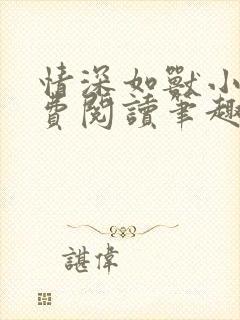 情深如獸小
費閱讀筆趣
諶偉